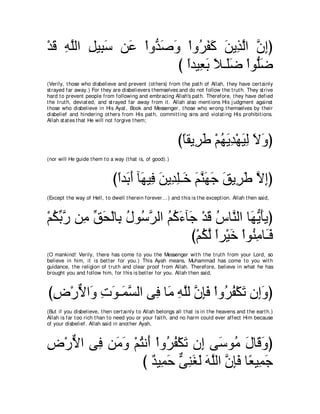 (إِنَّ الَّذِينَ كَفَرُواْ وَصَدُّواْ عَن سَبِيلِ اللَّهِ قَدْ
ضَلُّواْ ضَلَـلاَ بَعِيداً )
(Verily, those who disbelieve and prevent (others) from the path of Allah, they have certainly
strayed far away.) For they are disbelievers themselves and do not follow the truth. They strive
hard to prevent people from following and embracing Allah's path. Therefore, they have defied
the truth, deviated, and strayed far away from it. Allah also mentions His judgment against
those who disbelieve in His Ayat, Book and Messenger, those who wrong themselves by their
disbelief and hindering others from His path, committing sins and violating His prohibitions.
Allah states that He will not forgive them;
(وَلاَ لِيَهْدِيَهُمْ طَرِيقاً)
(nor will He guide them to a way (that is, of good).)
(إِلاَّ طَرِيقَ جَهَنَّمَ خَـلِدِينَ فِيهَآ أَبَداً)
(Except the way of Hell, to dwell therein forever...) and this is the exception. Allah then said,
(يَأَيُّهَا النَّاسُ قَدْ جَآءَكُمُ الرَّسُولُ بِالْحَقِّ مِن رَّبِّكُمْ
فَـَامِنُواْ خَيْراً لَّكُمْ)
(O mankind! Verily, there has come to you the Messenger with the truth from your Lord, so
believe in him, it is better for you.) This Ayah means, Muhammad has come to you with
guidance, the religion of truth and clear proof from Allah. Therefore, believe in what he has
brought you and follow him, for this is better for you. Allah then said,
(وَإِن تَكْفُرُواْ فَإِنَّ لِلَّهِ مَا فِى السَّمَـوَتِ وَالاٌّرْضِ)
(But if you disbelieve, then certainly to Allah belongs all that is in the heavens and the earth.)
Allah is far too rich than to need you or your faith, and no harm could ever affect Him because
of your disbelief. Allah said in another Ayah,
(وَقَالَ مُوسَى إِن تَكْفُرُواْ أَنتُمْ وَمَن فِى الاٌّرْضِ
جَمِيعًا فَإِنَّ اللَّهَ لَغَنِىٌّ حَمِيدٌ )